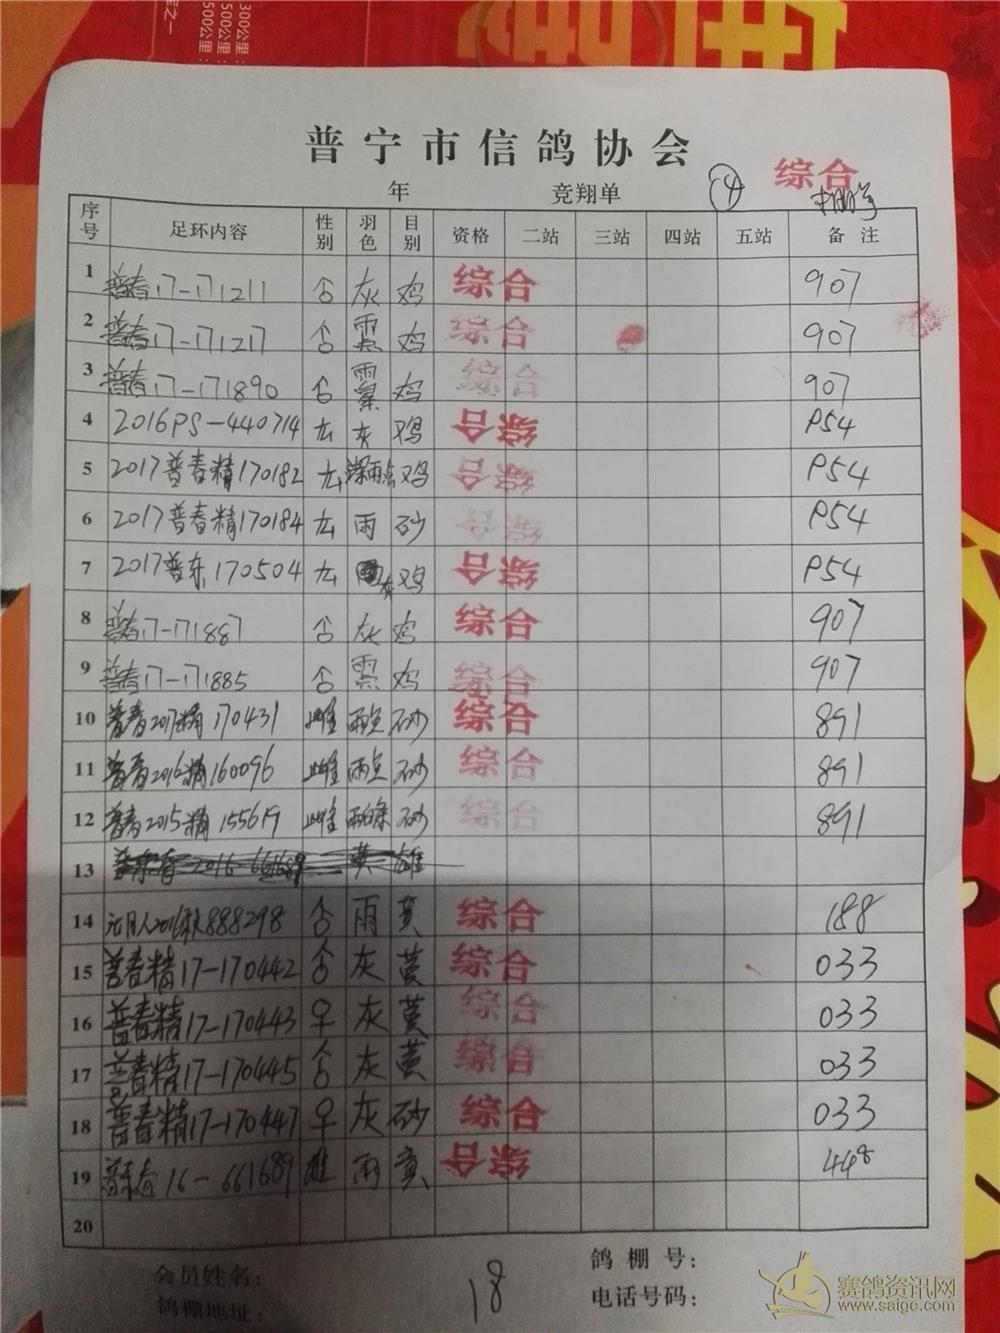 300公里：
500公里：
500公里：
普宁市信鸽协会
综合
年 竞翔单 14
序号 足环内容 性别 羽色 目别 资格 二站 三站 四站 五站 备注
1 普春17-171211 灰 鸡 综合 907
2 普春17-171217 鸡 综合 907
3 普春17-171890 鸡 综合 907
4 2016PS-440714 灰 鸡 综合 P54
5 2017普春精170182 深雨点 鸡 综合 P54
6 2017普春精170184 雨 砂 综合 P54
7 2017普东170504 灰 鸡 综合 P54
8 普春17-171887 灰 鸡 综合 907
9 普春17-171885 鸡 综合 907
10 普春2017精170431 雌 雨点 砂 综合 891
11 普春2016精160096 雌 雨点 砂 综合 891
12 普春2015精155619 雌 雨白条 砂 综合 891
13 2016 661689 黄 雄
14 888298 雨 黄 综合 188
15 普春精17-170442 灰 黄 综合 033
16 普春精17-170443 ♀ 灰 黄 综合 033
17 普春精17-170445 灰 黄 综合 033
18 普春精17-170447 ♀ 灰 砂 综合 033
19 16-661689 雄 雨 黄 综合 448
20
会员姓名： 鸽棚号：
鸽棚地址： 18 电话号码：
赛鸽资讯网
www.saigc.com